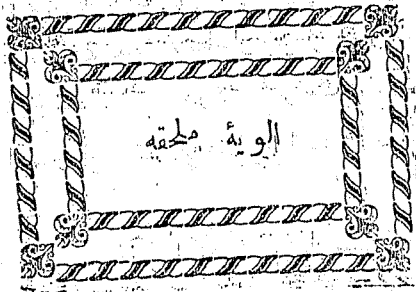 الوية ملحقه